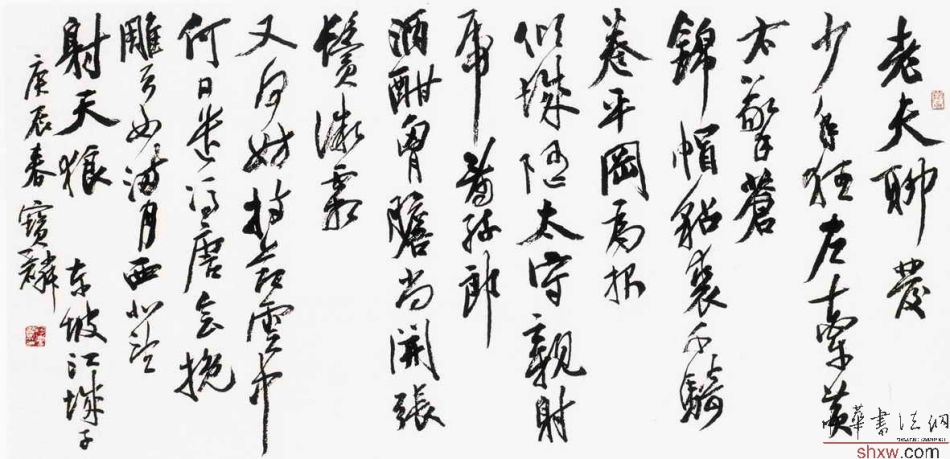 老夫聊發
少年狂左牽黃
右擎蒼
錦帽貂裘千騎
卷平岡為報
傾城隨太守親射
虎看孫郎
酒酣胸膽尚開張
鬢微霜
又何妨持節雲中
何日遣馮唐會挽
雕弓如滿月西北望
射天狼 東坡江城子
庚辰春寶麟
中華書法網
shxw.com